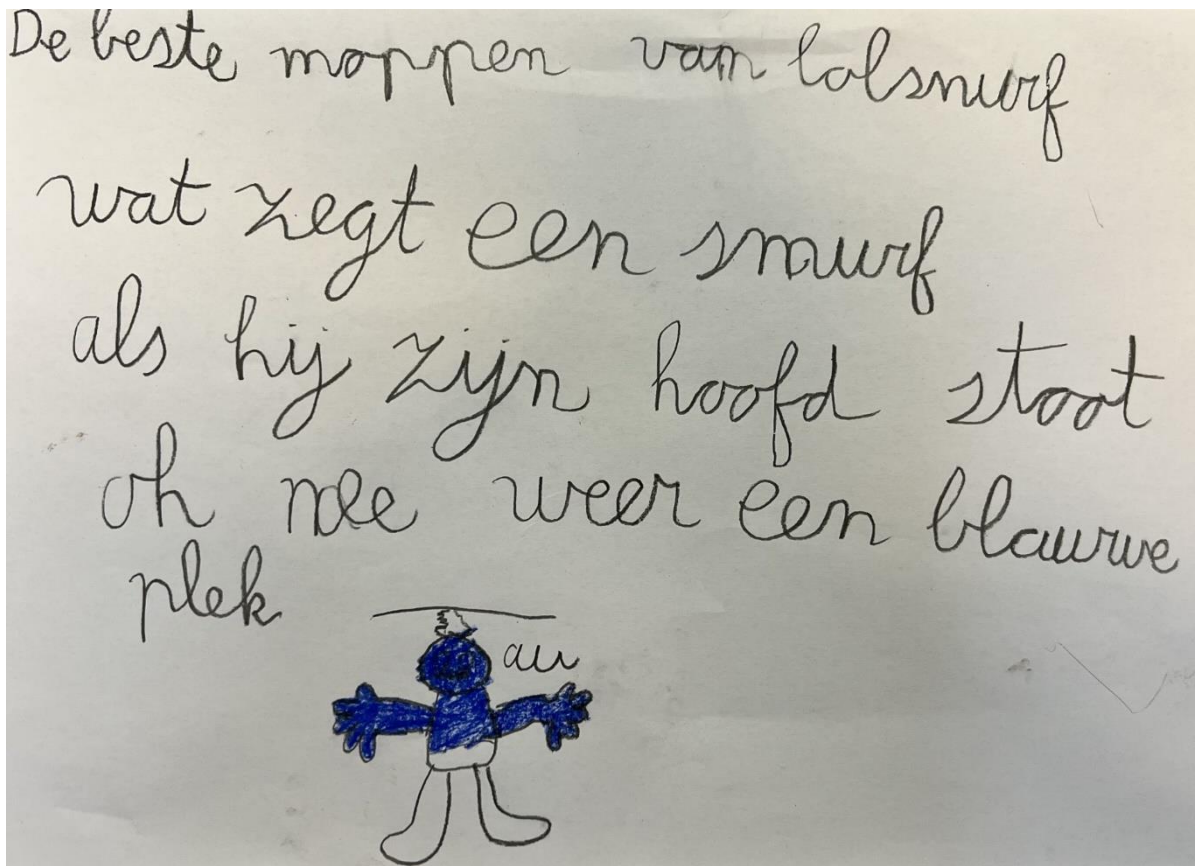 De beste moppen van lolsmurf
wat zegt een smurf
als hij zijn hoofd stoot
oh nee weer een blauwe
plek
au